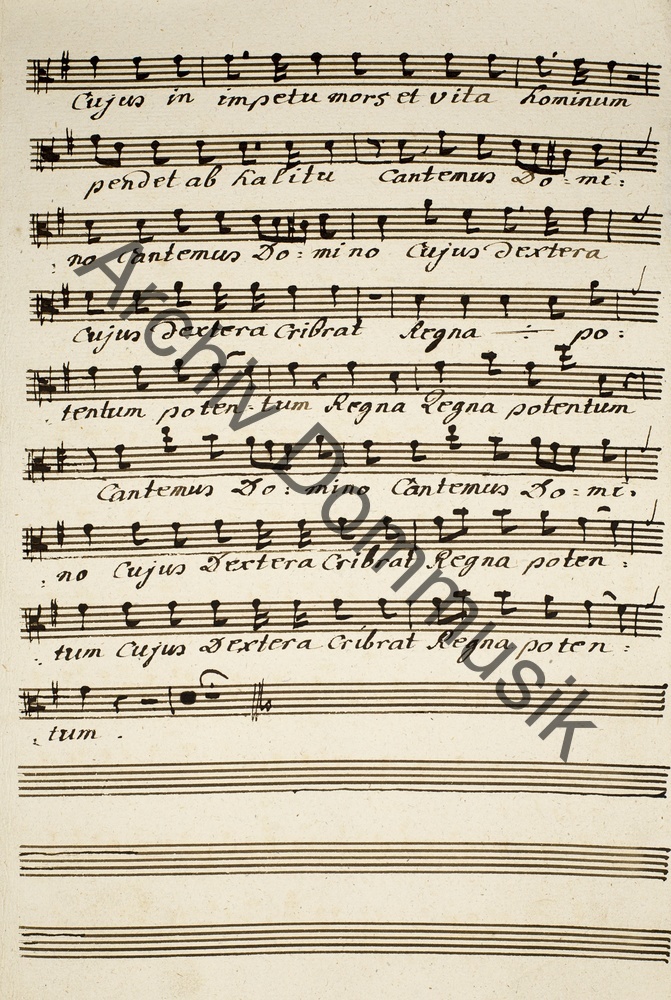 Cujus in impetu mors et vita hominum
pendet ab halitu Cantemus Do: mi:
: no Cantemus Do: mi no Cujus dextera
Cujus Dextera Cribrat Regna ÷ po:
: tentum poten: tum Regna Regna potentum
Cantemus Do: mino Cantemus Do: mi:
: no Cujus Dextera Cribrat Regna poten:
: tum Cujus Dextera Cribrat Regna poten:
: tum.
Archiv Dommusik